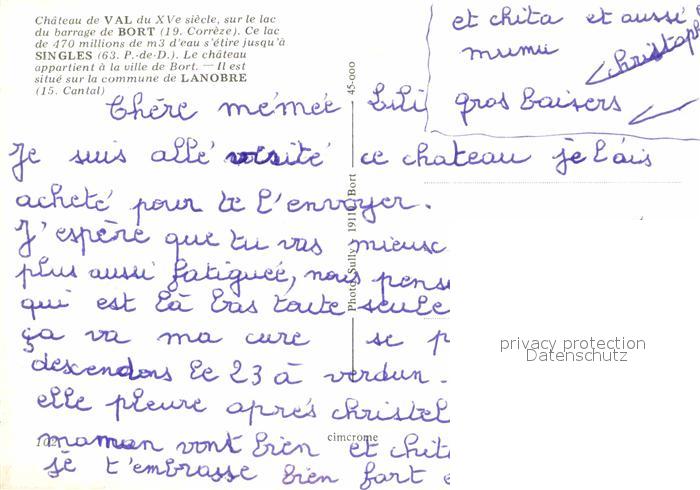 Château de VAL du XVe siècle, sur le lac
du barrage de BORT (19. Corrèze). Ce lac
de 470 millions de m3 d'eau s'étire jusqu'à
SINGLES (63. P.-de-D.). Le château
appartient à la ville de Bort. — Il est
situé sur la commune de LANOBRE
(15. Cantal)
et chita et aussi
mumu
christoph
gros baisers
Chére mémée Lili
Je suis allé visité ce chateau je l'ais
acheté pour te l'envoyer.
J'espère que tu vas mieusc
plus aussi fatiguée, nous pens
qui est là bas toute seule
ça va ma cure se p
descendons le 23 à verdun.
elle pleure aprés christel
maman vont bien et chit
je t'embrasse bien fort
45-000
Photo Sully 19110 Bort
cimcrome
privacy protection
Datenschutz